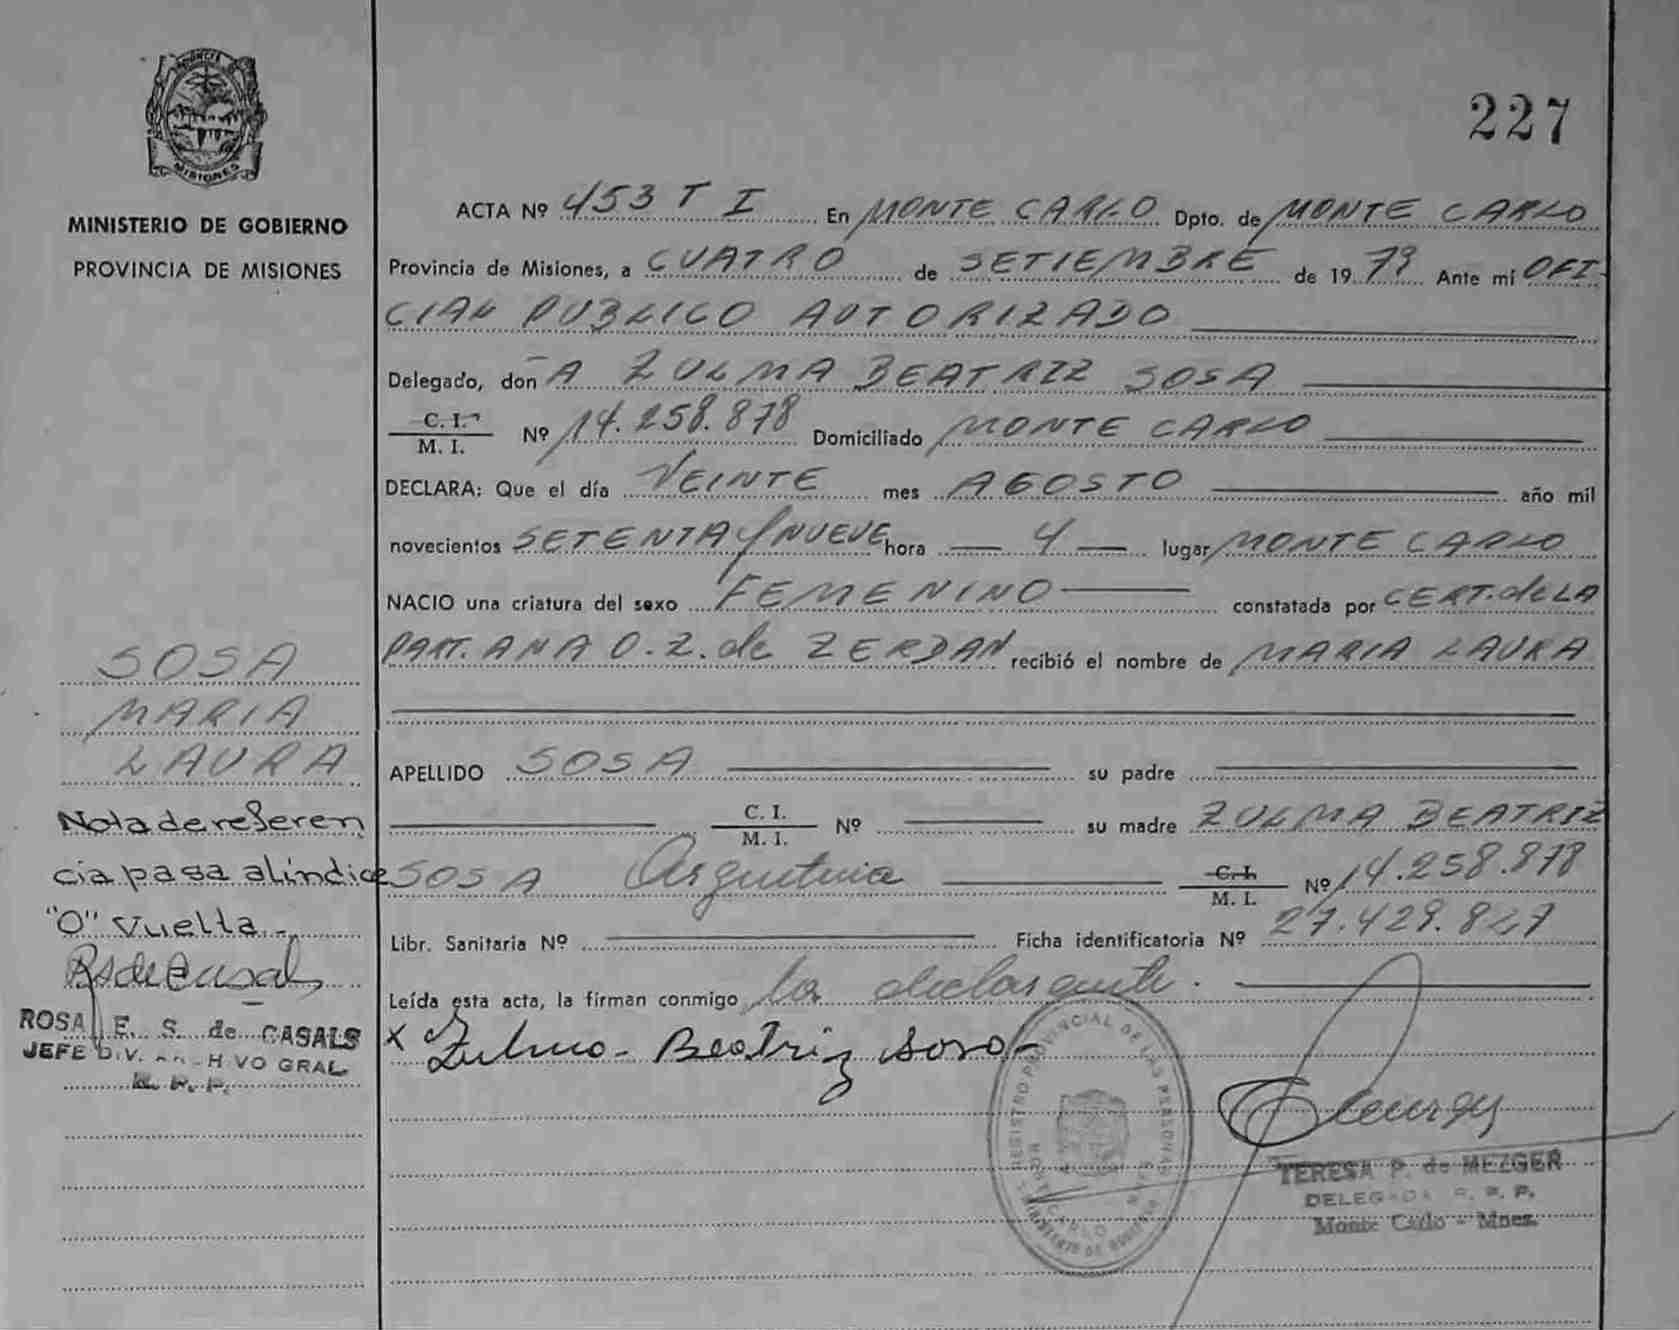 227
MISIONES
MINISTERIO DE GOBIERNO
PROVINCIA DE MISIONES
ACTA Nº 453 T I En MONTE CARLO Dpto. de MONTE CARLO
Provincia de Misiones, a CUATRO de SETIEMBRE de 1979 Ante mí OFI-
CIAL PUBLICO AUTORIZADO
Delegado, donA ZULMA BEATRIZ SOSA
C. I.
M. I. Nº 14.258.878 Domiciliado MONTE CARLO
DECLARA: Que el día VEINTE mes AGOSTO año mil
novecientos SETENTA Y NUEVE hora 4 lugar MONTE CARLO
NACIO una criatura del sexo FEMENINO constatada por CERT. de LA
PART. ANA O. Z. de ZERDAN recibió el nombre de MARIA LAURA
APELLIDO SOSA su padre
C. I.
M. I. Nº su madre ZULMA BEATRIZ
SOSA Argentina C. I.
M. I. Nº 14.258.878
Libr. Sanitaria Nº Ficha identificatoria Nº 27.429.827
Leída esta acta, la firman conmigo la declarante.
x Zulma Beatriz Sosa
SOSA
MARIA
LAURA
Nota de referen
cia pasa al índice
"O" Vuelta
RS de Casals
ROSA E. S. de CASALS
JEFE DIV. ARCHIVO GRAL.
R. P. P.
REGISTRO PROVINCIAL DE LAS PERSONAS
MINISTERIO DE GOBIERNO
TERESA P. de MEZGER
DELEGADA R. P. P.
Monte Carlo - Mnes.